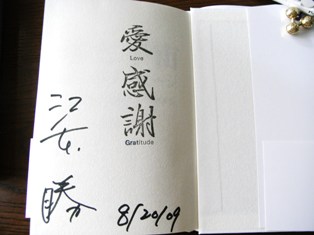 愛
Love
感
謝
Gratitude
江本
勝
8/20/09